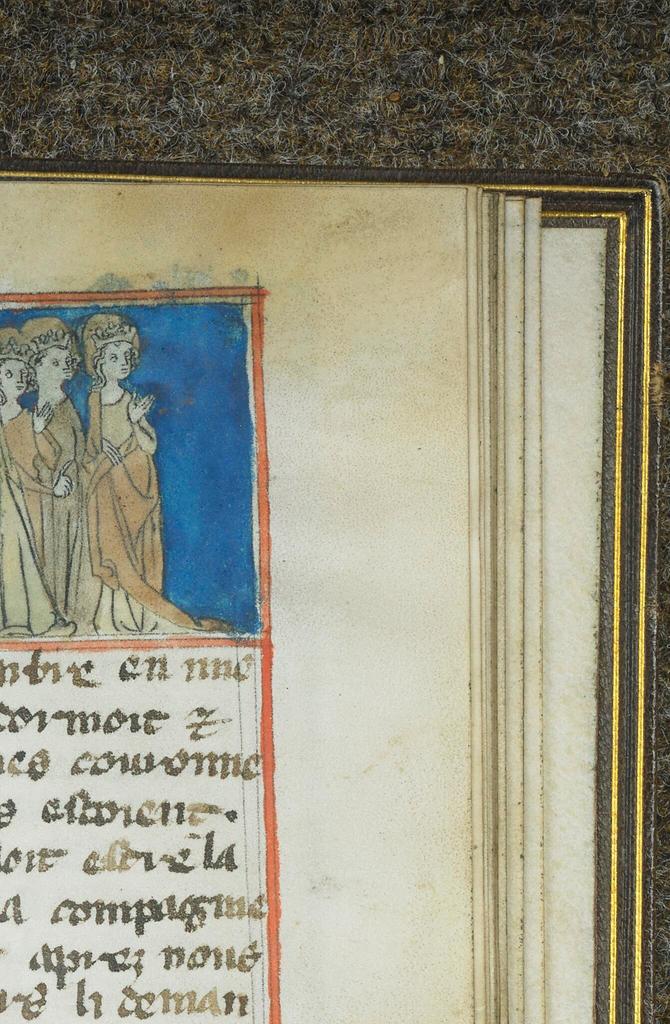 mbre en une
dormoit ⁊
nes couronne
s estoient .
loit estre la
a compagnie
aprez nous
rs li deman